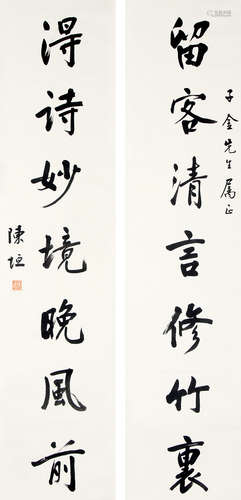 留客清言修竹裏
子金先生属正
得诗妙境晚風前
陳垣